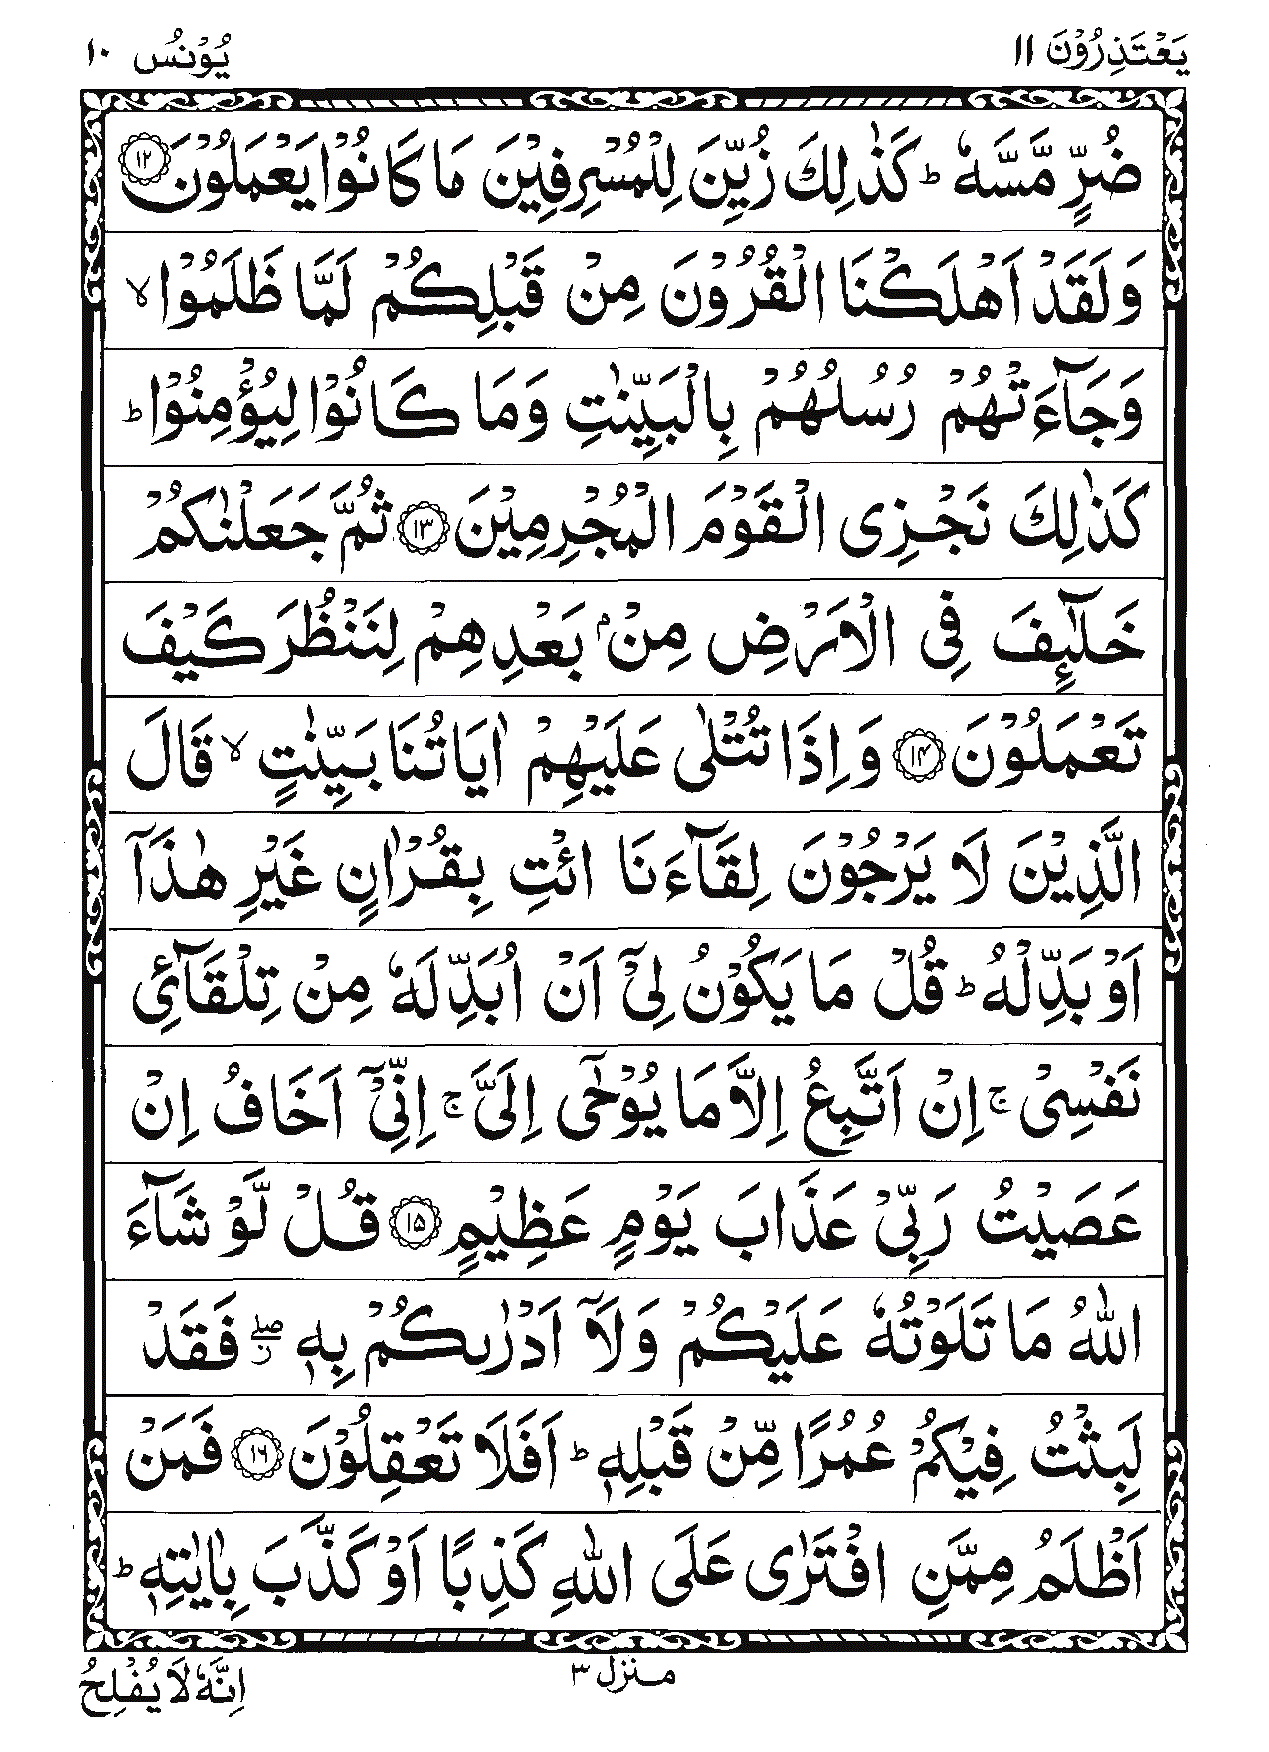 يَعْتَذِرُوْنَ ١١
يُوْنُسُ ١٠
ضُرٍّ مَّسَّهٗ ؕ كَذٰلِكَ زُيِّنَ لِلْمُسْرِفِيْنَ مَا كَانُوْا يَعْمَلُوْنَ ﴿١٢﴾
وَلَقَدْ اَهْلَكْنَا الْقُرُوْنَ مِنْ قَبْلِكُمْ لَمَّا ظَلَمُوْا ۙ
وَجَآءَتْهُمْ رُسُلُهُمْ بِالْبَيِّنٰتِ وَمَا كَانُوْا لِيُؤْمِنُوْا ؕ
كَذٰلِكَ نَجْزِى الْقَوْمَ الْمُجْرِمِيْنَ ﴿١٣﴾ ثُمَّ جَعَلْنٰكُمْ
خَلٰٓئِفَ فِى الْاَرْضِ مِنْۢ بَعْدِهِمْ لِنَنْظُرَ كَيْفَ
تَعْمَلُوْنَ ﴿١۴﴾ وَاِذَا تُتْلٰى عَلَيْهِمْ اٰيَاتُنَا بَيِّنٰتٍ ۙ قَالَ
الَّذِيْنَ لَا يَرْجُوْنَ لِقَآءَنَا ائْتِ بِقُرْاٰنٍ غَيْرِ هٰذَآ
اَوْ بَدِّلْهُ ؕ قُلْ مَا يَكُوْنُ لِىْٓ اَنْ اُبَدِّلَهٗ مِنْ تِلْقَآئِ
نَفْسِىْ ۚ اِنْ اَتَّبِعُ اِلَّا مَا يُوْحٰٓى اِلَىَّ ۚ اِنِّىْٓ اَخَافُ اِنْ
عَصَيْتُ رَبِّىْ عَذَابَ يَوْمٍ عَظِيْمٍ ﴿١۵﴾ قُلْ لَّوْ شَآءَ
اللّٰهُ مَا تَلَوْتُهٗ عَلَيْكُمْ وَلَآ اَدْرٰىكُمْ بِهٖ ۖ ز فَقَدْ
لَبِثْتُ فِيْكُمْ عُمُرًا مِّنْ قَبْلِهٖ ؕ اَفَلَا تَعْقِلُوْنَ ﴿١٦﴾ فَمَنْ
اَظْلَمُ مِمَّنِ افْتَرٰى عَلَى اللّٰهِ كَذِبًا اَوْ كَذَّبَ بِاٰيٰتِهٖ ؕ
منزل ٣
اِنَّهٗ لَا يُفْلِحُ